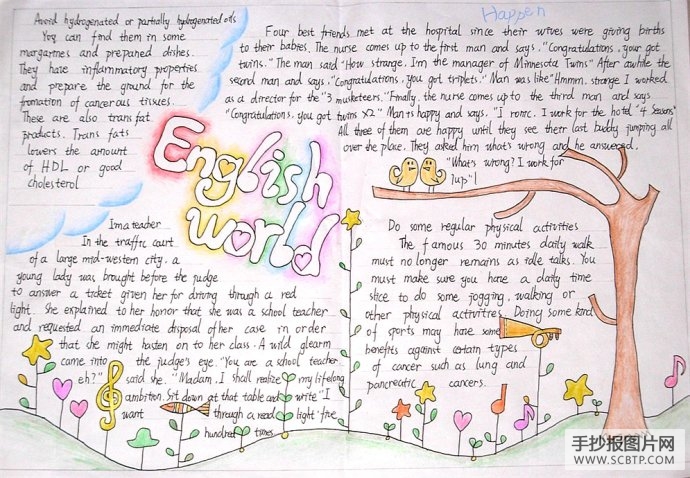 Avoid hydrogenated or partially hydrogenated oils
You can find them in some
margarines and prepaned dishes.
They have inflammatory properties
and prepare the ground for the
fromation of cancerous tissues.
These are also trans fat
products. Trans fats
lowers the amount
of HDL or good
cholesterol
Happen
Four best friends met at the hospital since their wives were giving births
to their babies. The nurse comes up to the first man and says, "Congratulations, your got
twins." The man said "How strange. I'm the manager of Minnesota Twins" After awhile the
second man and says, "Congratulations, you got triplets." Man was like "Hmmm, strange I worked
as a director for the "3 musketeers." Finally, the nurse comes up to the third man and says
"Congratulations, you got twins X2" Man is happy and says, "I ronic. I work for the hotel "4 Seasons"
All three of them are happy until they see their last buddy jumping all
over the place. They asked him what's wrong and he answered,
"What's wrong? I work for
7up"!
English
world
Im a teacher
In the traffic court
of a large mid-western city, a
young lady was brought before the judge
to answer a ticket given her for driving through a red
light. She explained to her honor that she was a school teacher
and requested an immediate disposal of her case in order
that she might hasten on to her class. A wild glearm
came into the judge's eye. "You are a school teacher,
eh?" said she. "Madam, I shall realize my lifelong
ambition. Sit down at that table and write "I
want through a read light" five
hundred times.
Do some regular physical activities
The famous 30 minutes daily walk
must no longer remains as idle talks. You
must make sure you have a daily time
slice to do some jogging, walking or
other physical activitres. Doing some kind
of sports may have some
benefits against certain types
of cancer such as lung and
pancreatic cancers.
手抄报图片网
WWW.SCBTP.COM